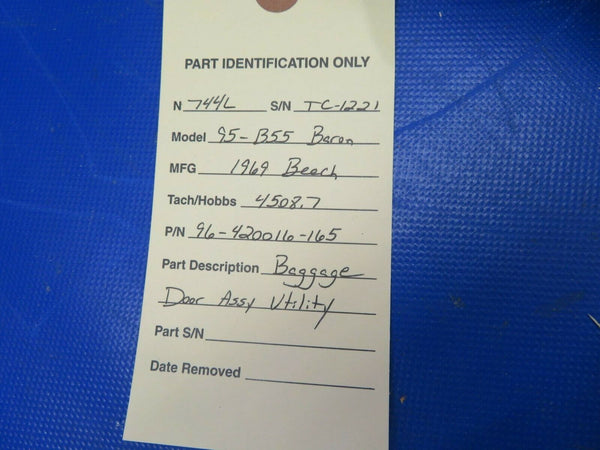 PART IDENTIFICATION ONLY
N 744L S/N TC-1221
Model 95-B55 Baron
MFG 1969 Beech
Tach/Hobbs 4508.7
P/N 96-420016-165
Part Description Baggage
Door Assy Utility
Part S/N
Date Removed